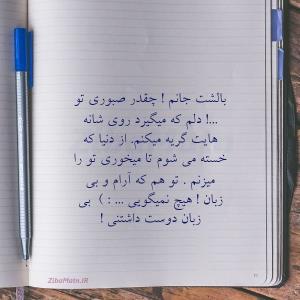 بالشت جانم ! چقدر صبوری تو
...! دلم که میگیرد روی شانه
هایت گریه میکنم. از دنیا که
خسته می شوم تا میخوری تو را
میزنم . تو هم که آرام و بی
زبان ! هیچ نمیگویی ... : ) بی
زبان دوست داشتنی !
ZibaMatn.IR